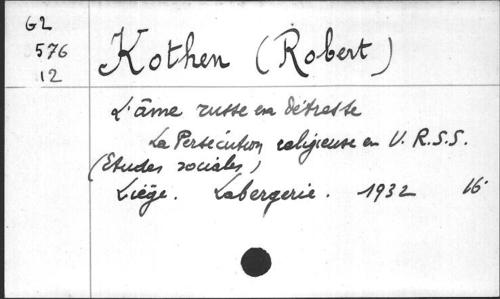 G2
576
12
Kothen (Robert)
L'âme russe en détresse
La Persécution religieuse en U.R.S.S.
(Etudes sociales)
Liège. Labergerie. 1932 16°